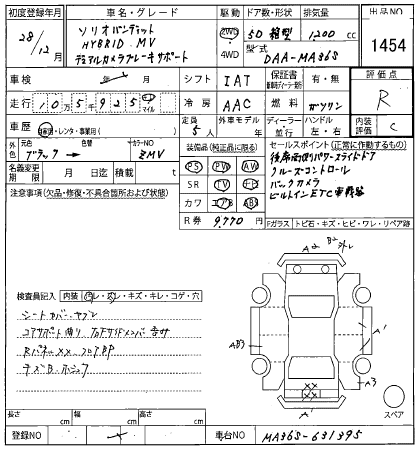 初度登録年月 車名・グレード 駆動 ドア数・形状 排気量 出品NO
28/12 ソリオバンディット HYBRID MV デュアルカメラブレーキサポート 2WD 4WD 5D 箱型 1200 cc 1454
型式 DAA-MA36S
車検 年 月 シフト IAT 保証書 有・無 評価点
走行 10万5千925 キロ マイル 冷房 AAC 燃料 ガソリン R
車歴 自家用・レンタ・事業用( ) 定員 5人 外車モデル 年 ディーラー 並行 ハンドル 左・右 内装評価 C
外色 元色 ブラック → 色替 カラーNO ZMV
装備品(純正品に限る) セールスポイント(正常に作動するもの)
名義変更期限 月 日迄 積載 t
PS PW AW 後席両側パワースライドドア
注意事項(欠品・修復・不具合箇所および状態) SR TV クルーズコントロール
カワ エアB ABS バックカメラ
R券 9,770円 ビルトインETC車載器
Fガラス トビ石・キズ・ヒビ・ワレ・リペア跡
A2 B2
検査員記入 内装 汚レ・スレ・キズ・キレ・コゲ・穴
シートカバー・ヤブレ
コアサポート曲り
RパネルXX、フロアBP
AB3 A' A3
XX
A'
スペア
長さ cm 幅 cm 高さ cm
登録NO 車台NO MA36S-631395